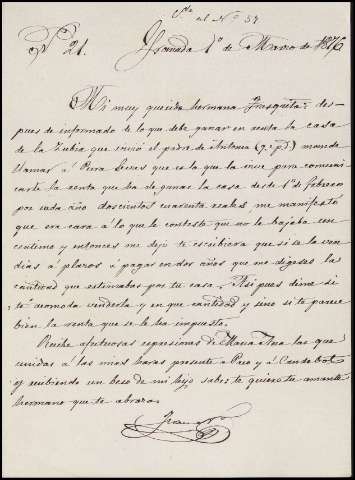 Vde. al Nº 37
Nº 21. Granada 1º de Marzo de 1876
Mi muy querida hermana Frasquita: des-
pues de informado de lo que debe ganar en renta la casa
de la Zubia que vivió el padre de Antonia (q.e.p.d.) mandé
llamar á Pura que es la que la vive para comuni-
carle la renta que ha de ganar la casa desde 1º de febrero
por cada año doscientos cuarenta reales, me manifestó
que era cara á lo que le contesté que no le bajaba un
centimo y entonces me dijo te escribiera que si se la ven-
dias á plazos á pagar en dos años que me digeses la
cantidad que estimabas por tu casa. Asi pues dime si
te acomoda venderla y en que cantidad y sino si te parece
bien la renta que se le ha impuesto.
Recibe afectuosas espresiones de Maria Teresa las que
unidas á las mias haras presente á Paco y á
y recibiendo un beso de mi hijo sabes te quiere tu amante
hermano que te abraza.
Franco